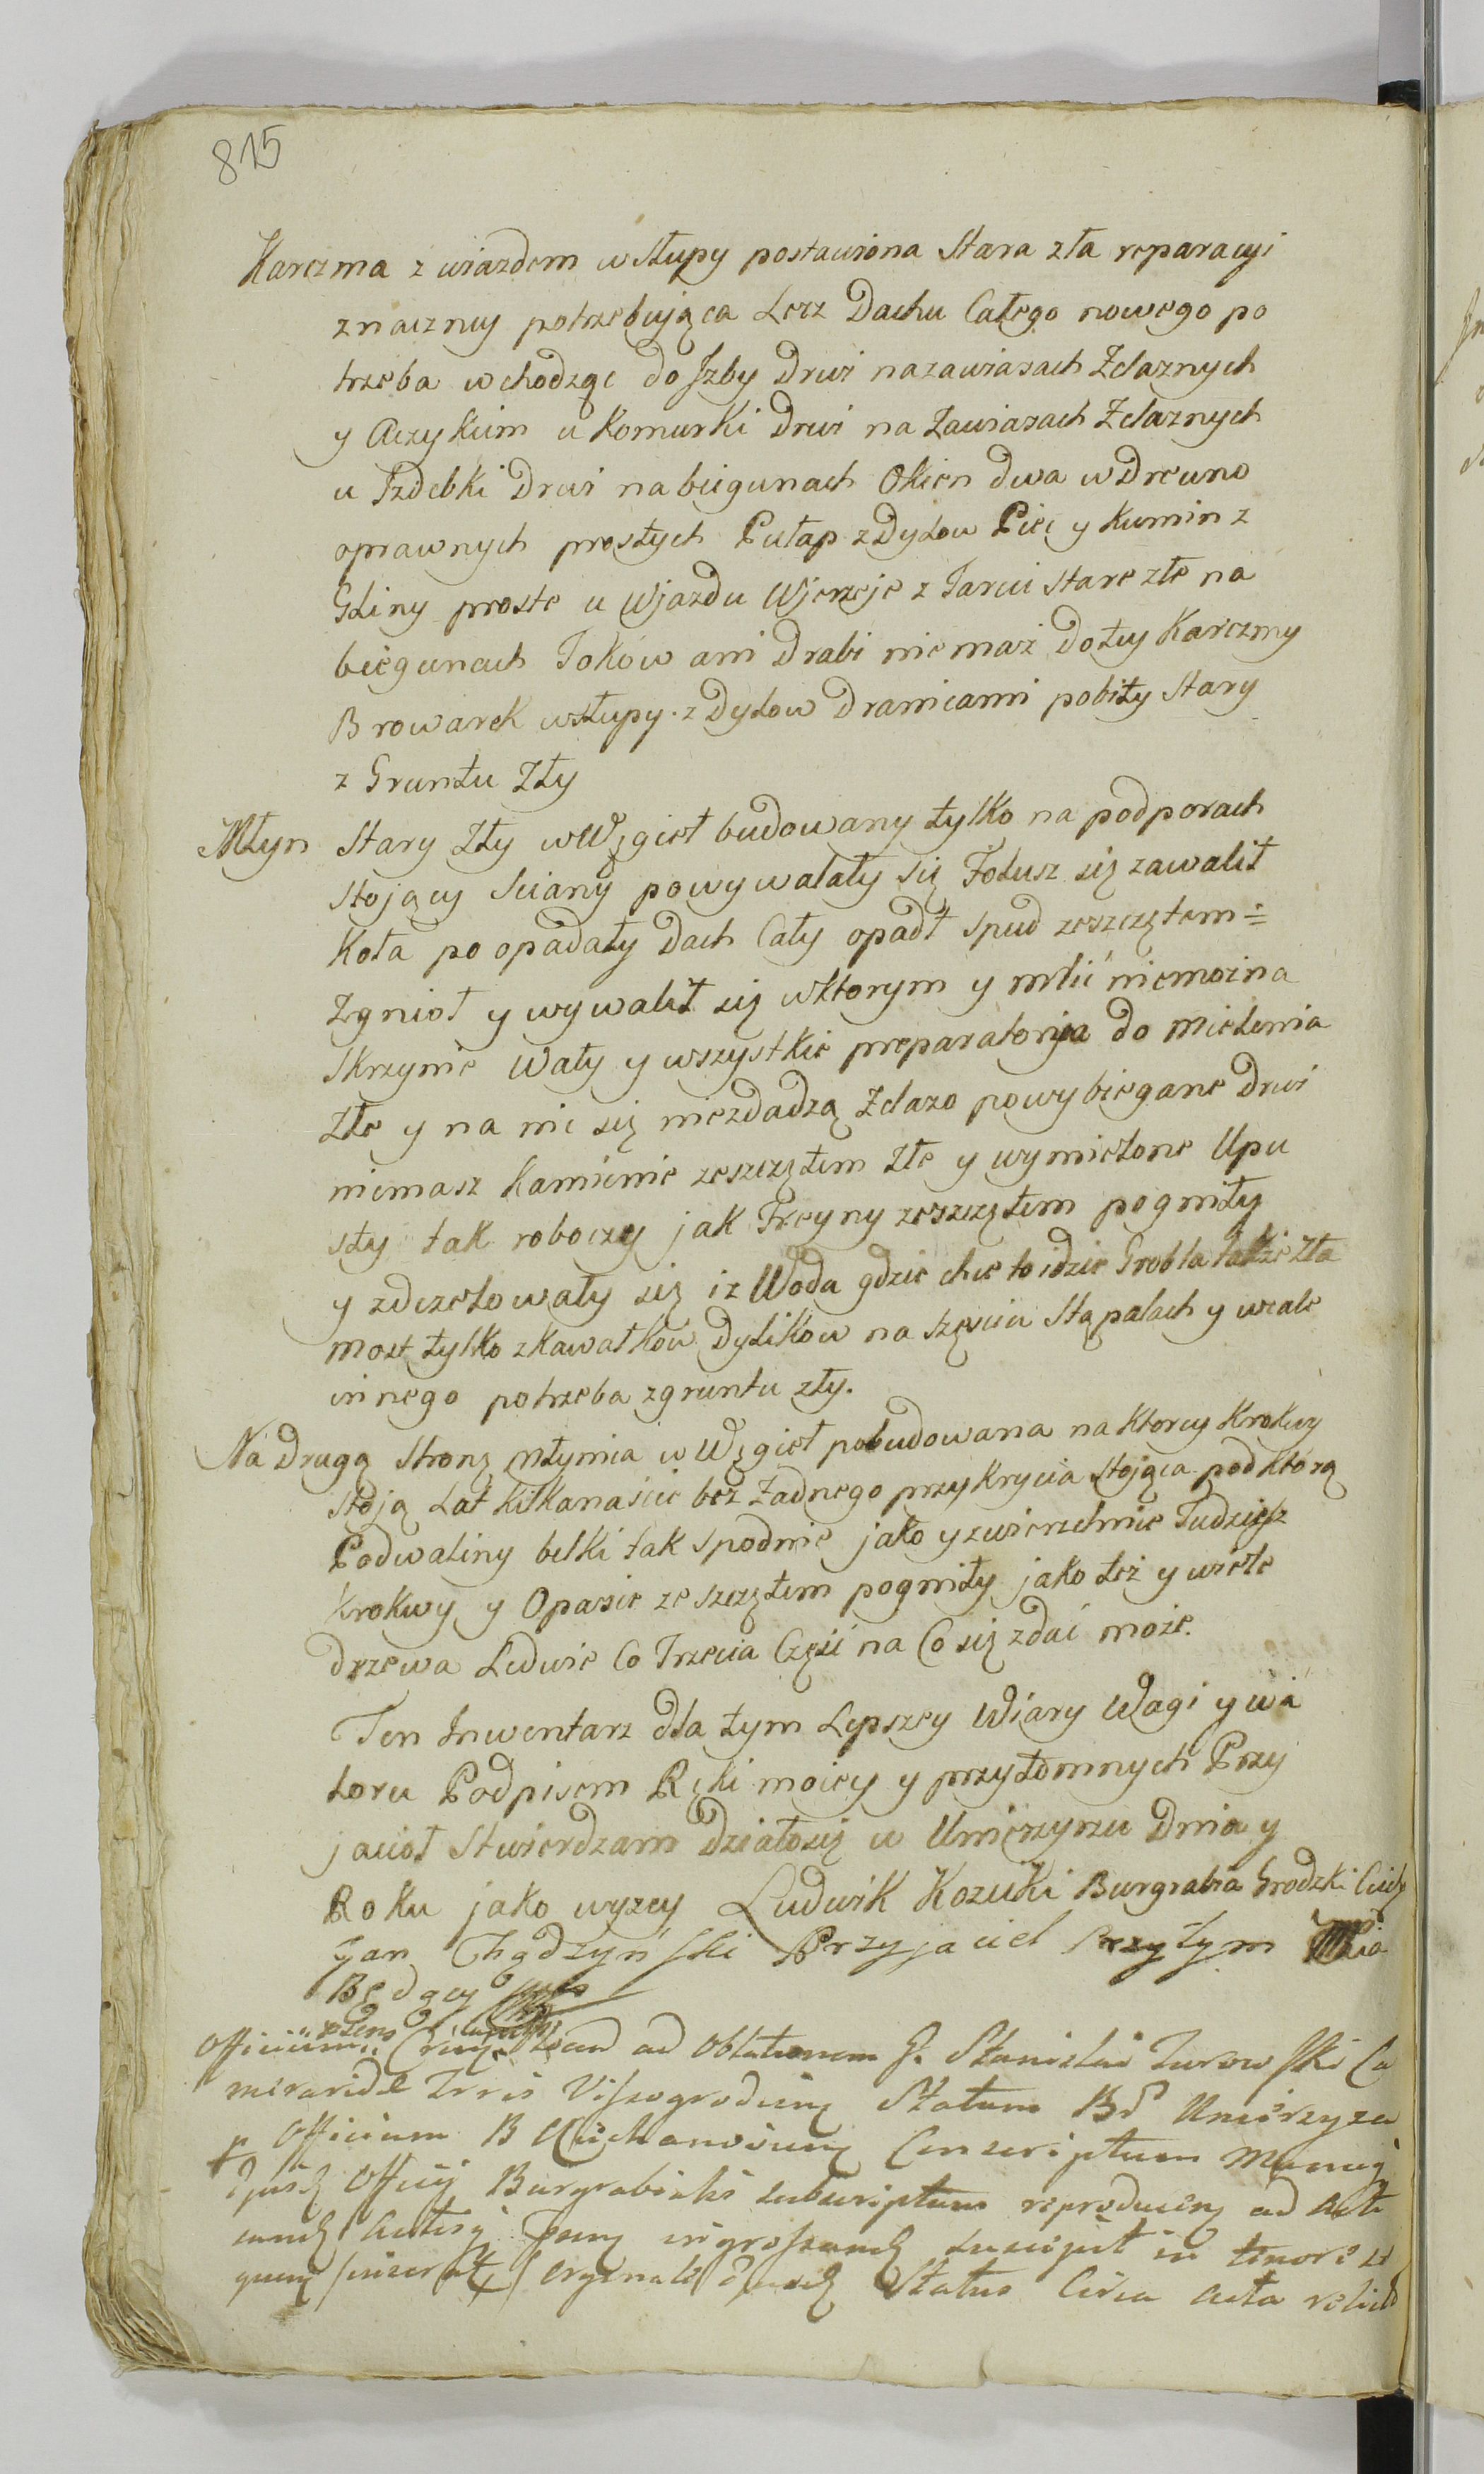 815
Karczma z wiazdem w Słupy postawiona Stara zła reparacyi
znaczney potrzebująca Lecz Dachu Całego nowego po
trzeba wchodząc do Jzby Drwi na zawiasach Żelaznych
y Aczykiim u Komurki Drwi na Zawiasach Żelaznych
u Jzdebki Drwi na biegunach Okien dwa w Drewno
oprawnych prostych Pułap z Dylow Piec y Kumin z
Gliny proste u Wjazdu Wjerzeje z Tarcic stare złe na
biegunach Toków ani Drabi nie maż do tey Karczmy
Browarek w słupy z Dylow Dranicami pobity Stary
z Gruntu Zły
Młyn Stary Zły w Węgieł budowany tylko na podporach
stojący Sciany powywalały się Folusz się zawalił
Koła po opadały Dach Cały opadł Spud zeszczętem
Zgnioł y wywalił się w ktorym y mlić niemożna
Skrzynie Wały y wszystkie preparatorija do Mielenia
Złe y na nic się niezdadzą Żelazo powybiegane Drwi
niemasz Kamienie zeszczętem Złe y wymielone Upu
sty tak roboczy jak Freyny zeszczętem pogniły
y zdezelowały się iż Woda gdzie chce to idzie Grobla także Zła
most tylko z kawałkow Dylikow na sześciu Stąpalach y wcale
innego potrzeba z gruntu zły.
Na Drugą Stronę Młynia w Węgieł pobudowana na ktorey Krokwy
Stoją Lat kilkanaście bez Żadnego przykrycia stojąca pod którą
Podwaliny belki tak Spodnie jako y zwierzchnie Tudziesz
Krokwy y Opasie ze szczętem pogniły jako też y wiele
drzewa Ledwie Co Trzecia Część na Co się zdać może.
Ten Inwentarz dla tym Lepszey Wiary Wagi y wa
loru Podpisem Ręki moiey y przytomnych Przy
jacioł Stwierdzam Działo się w Umierzyzu Dnia y
Roku jako wyzey Ludwik Kozicki Burgrabia Grodzki Ciech
Jan Chądzyński Przyjaciel Przy tym
Będący
Officium ad Oblationem Stanislai Zurowski Ca
Terris Vissogrodien Statum Bd Umierzyza
p Officium B Ciechanovien Conscriptum Manuq
Ejusd Officij Burgrabialis subscriptum reproducen ad Acti
cand ingrossand suscepit in tenore se
quen Status Circa Acta relict